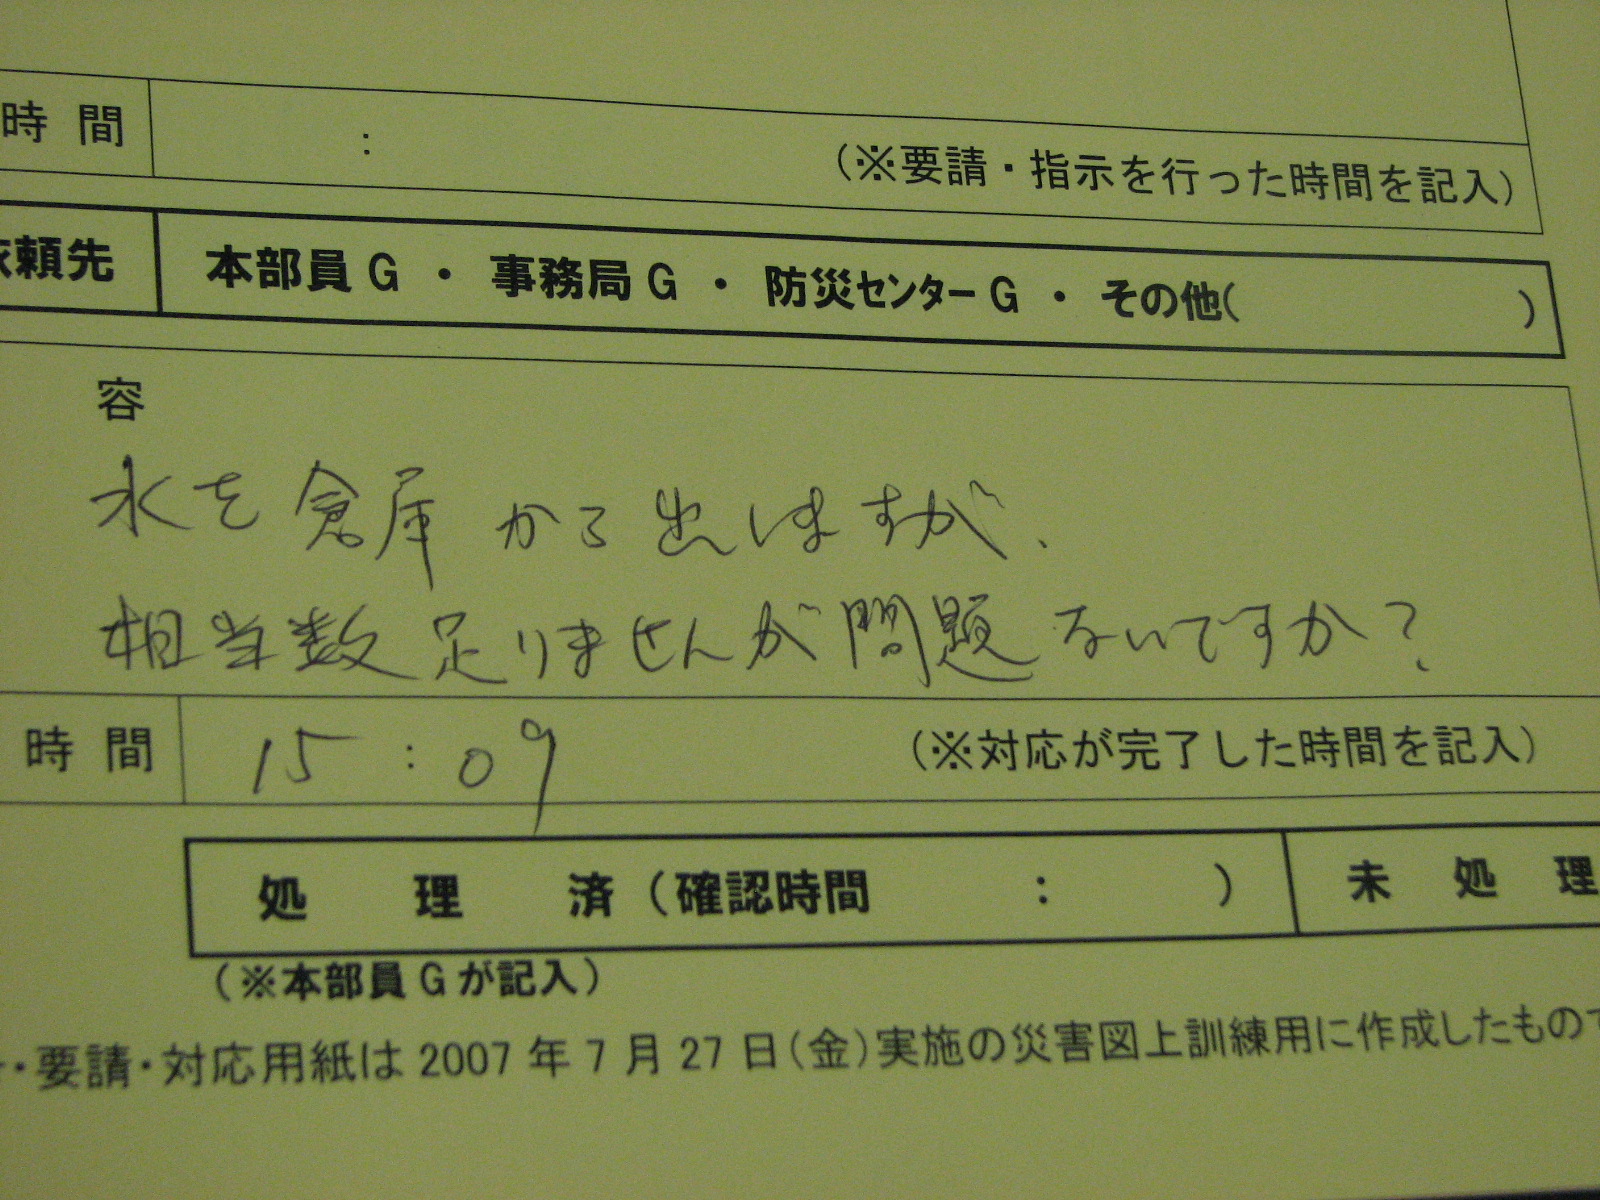 時 間 : (※要請・指示を行った時間を記入)
依頼先 本部員G ・ 事務局G ・ 防災センターG ・ その他( )
容
水を倉庫から出しますが、
相当数足りませんが問題ないですか?
時 間 15:09 (※対応が完了した時間を記入)
処 理 済 (確認時間 : ) 未 処 理
(※本部員Gが記入)
・要請・対応用紙は 2007 年 7 月 27 日(金)実施の災害図上訓練用に作成したもので